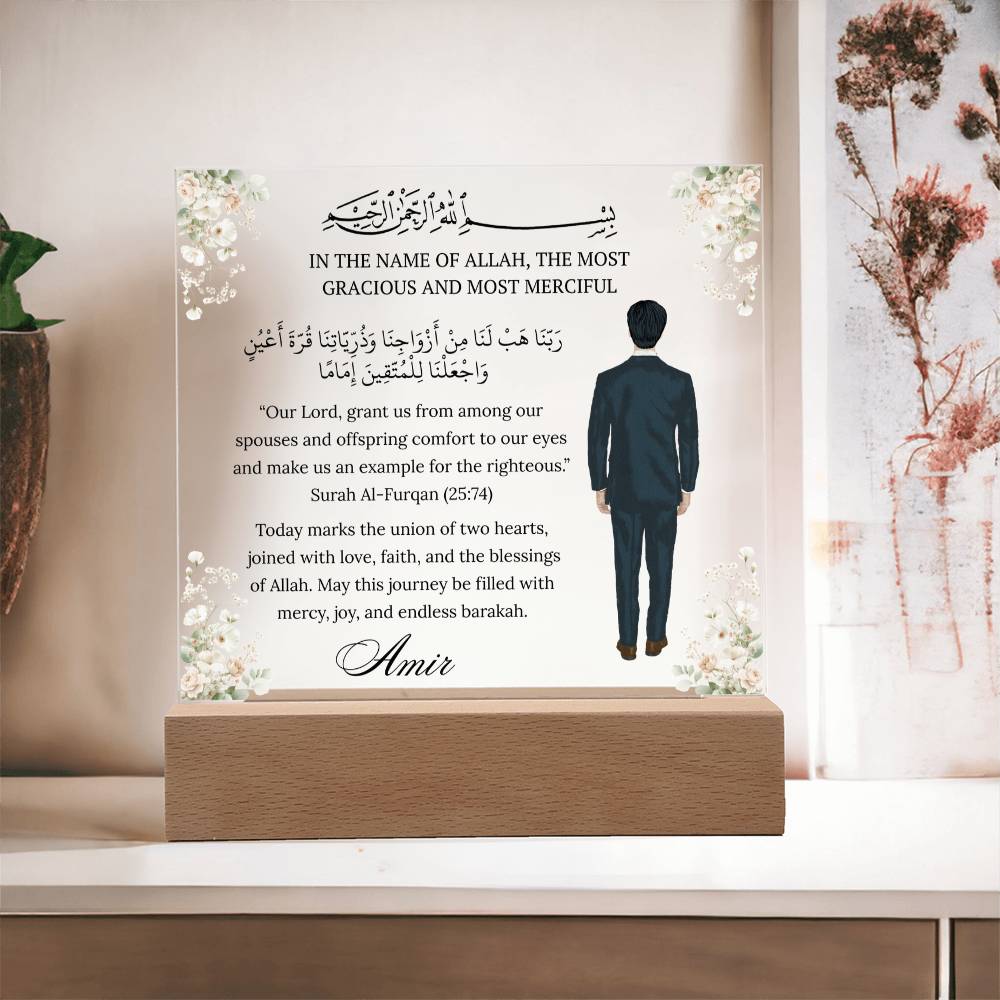 بِسْمِ ٱللَّٰهِ ٱلرَّحْمَٰنِ ٱلرَّحِيمِ
IN THE NAME OF ALLAH, THE MOST
GRACIOUS AND MOST MERCIFUL
رَبَّنَا هَبْ لَنَا مِنْ أَزْوَاجِنَا وَذُرِّيَّاتِنَا قُرَّةَ أَعْيُنٍ
وَاجْعَلْنَا لِلْمُتَّقِينَ إِمَامًا
“Our Lord, grant us from among our
spouses and offspring comfort to our eyes
and make us an example for the righteous.”
Surah Al-Furqan (25:74)
Today marks the union of two hearts,
joined with love, faith, and the blessings
of Allah. May this journey be filled with
mercy, joy, and endless barakah.
Amir